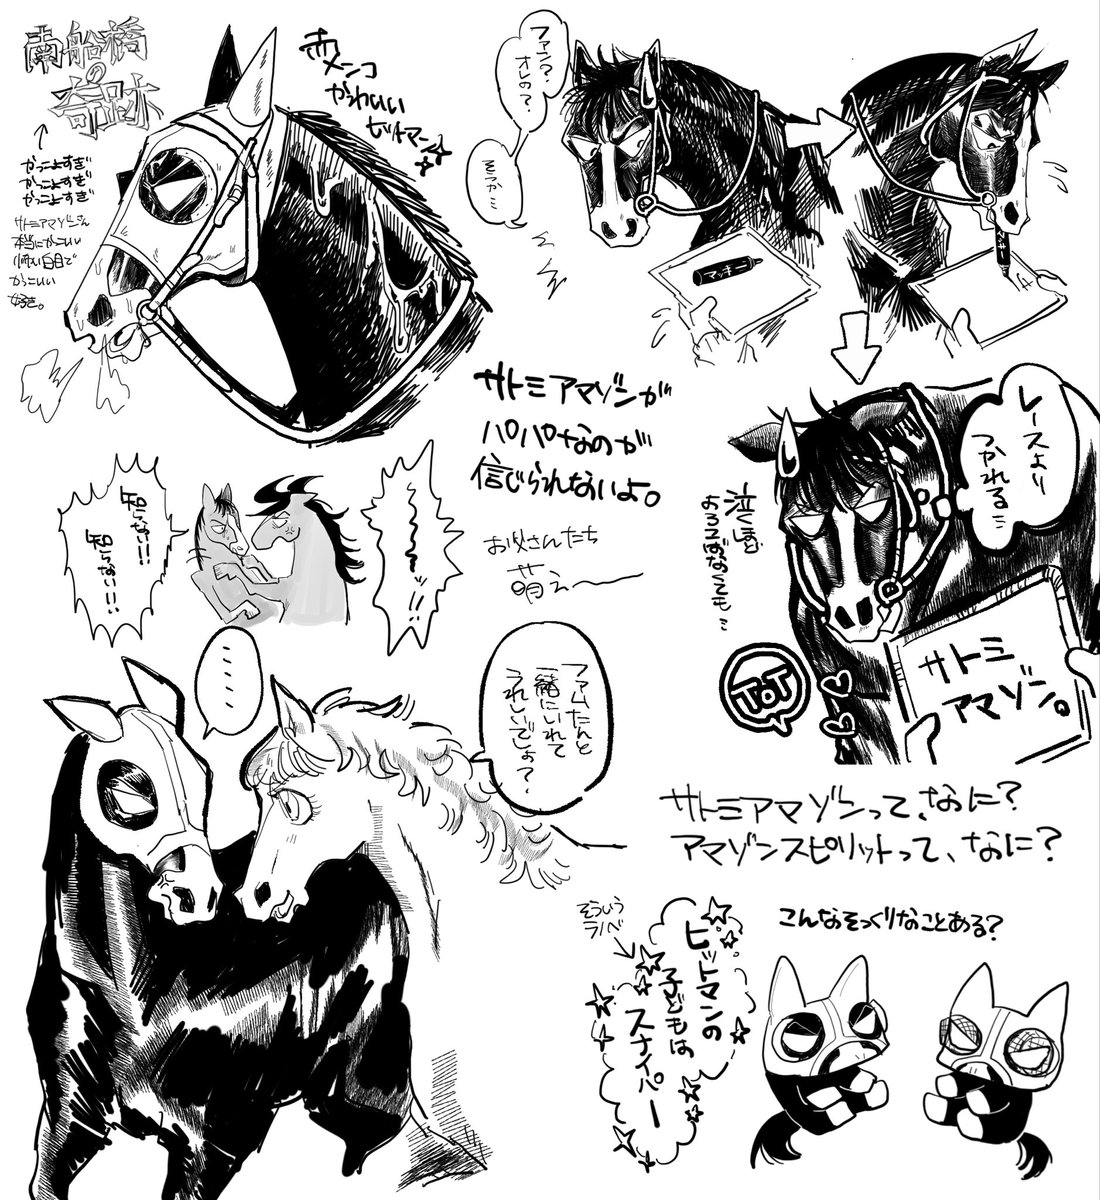 南船橋
の
奇跡
↑
かっこよすぎ
かっこよすぎ
かっこよすぎ
サトミアマゾンさん
本当にかっこいい
白目で
かっこいい
好き。
赤メンコ
かわいい
ヒットマン
ファン?
オレの?
そうか…
マッキー
レースより
つかれる…
泣くほど
よろこばなくても…
サトミ
アマゾン。
ToT
サトミアマゾンが
パパなのが
信じられないよ。
お父さんたち
萌え〜
知らない!!
知らない!!
……
ファムたんと
一緒にいれて
うれしいでしょ?
サトミアマゾンって、なに?
アマゾンスピリットって、なに?
そういう
ラノベ
ヒットマンの
子どもは
スナイパー
こんなそっくりなことある?